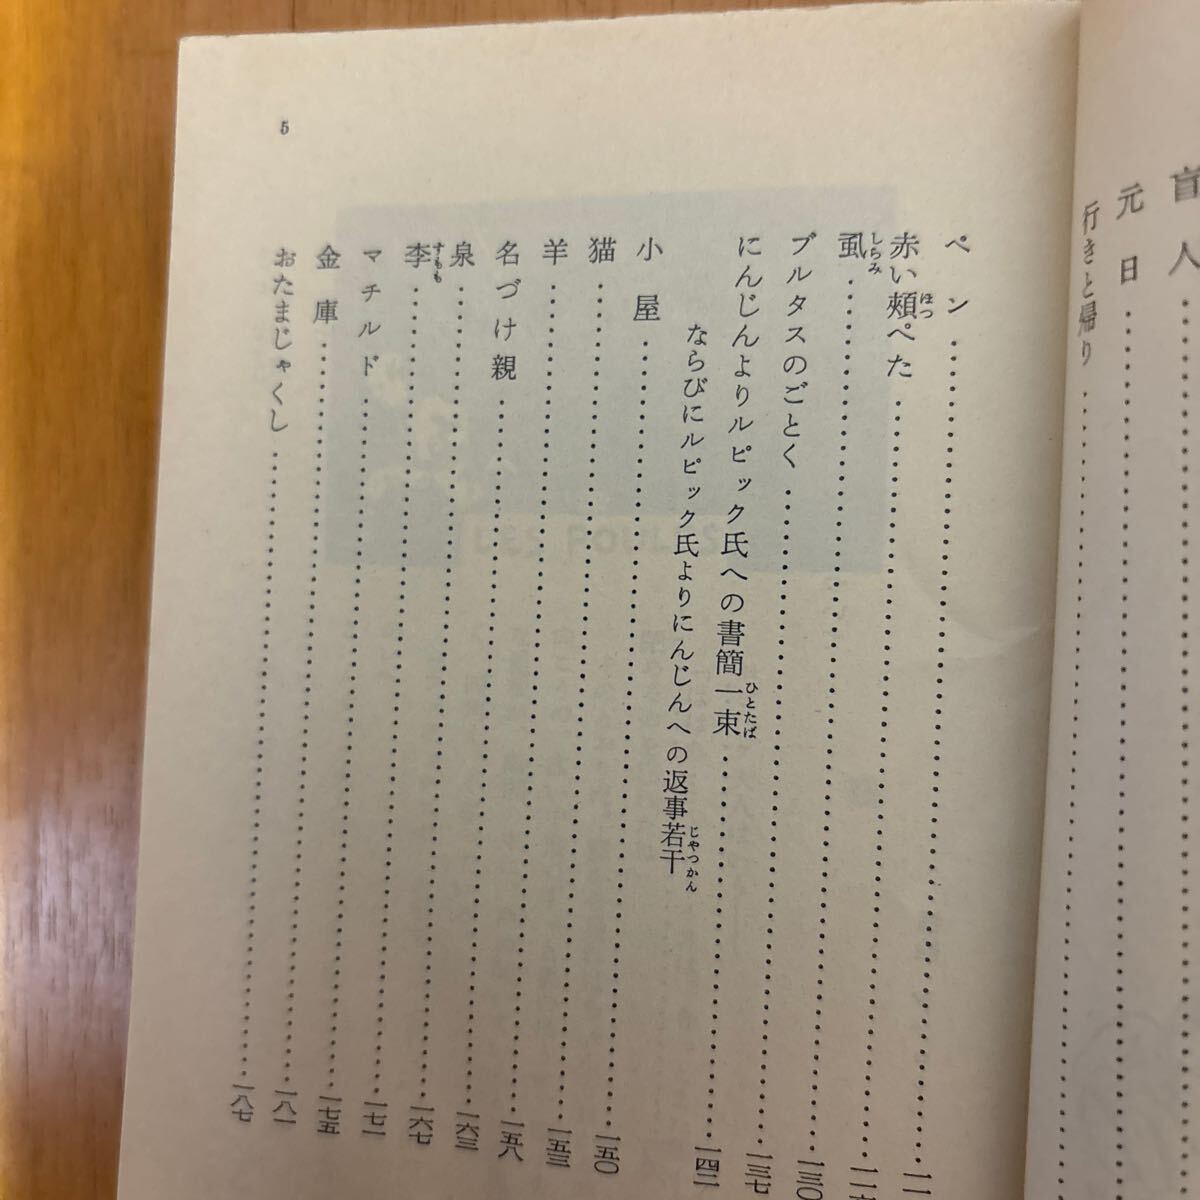 盲人……
元日……
行きと帰り……
ペン……一一
赤い頰ぺた……一一
ほつ
虱……一三〇
しらみ
ブルタスのごとく……一三七
にんじんよりルピック氏への書簡一束……一四二
ひとたば
ならびにルピック氏よりにんじんへの返事若干
じやつかん
小屋……一五〇
猫……一五三
羊……一五八
名づけ親……一六三
泉……一六七
李……一七一
すもも
マチルド……一七五
金庫……一八一
おたまじゃくし……一八七
5